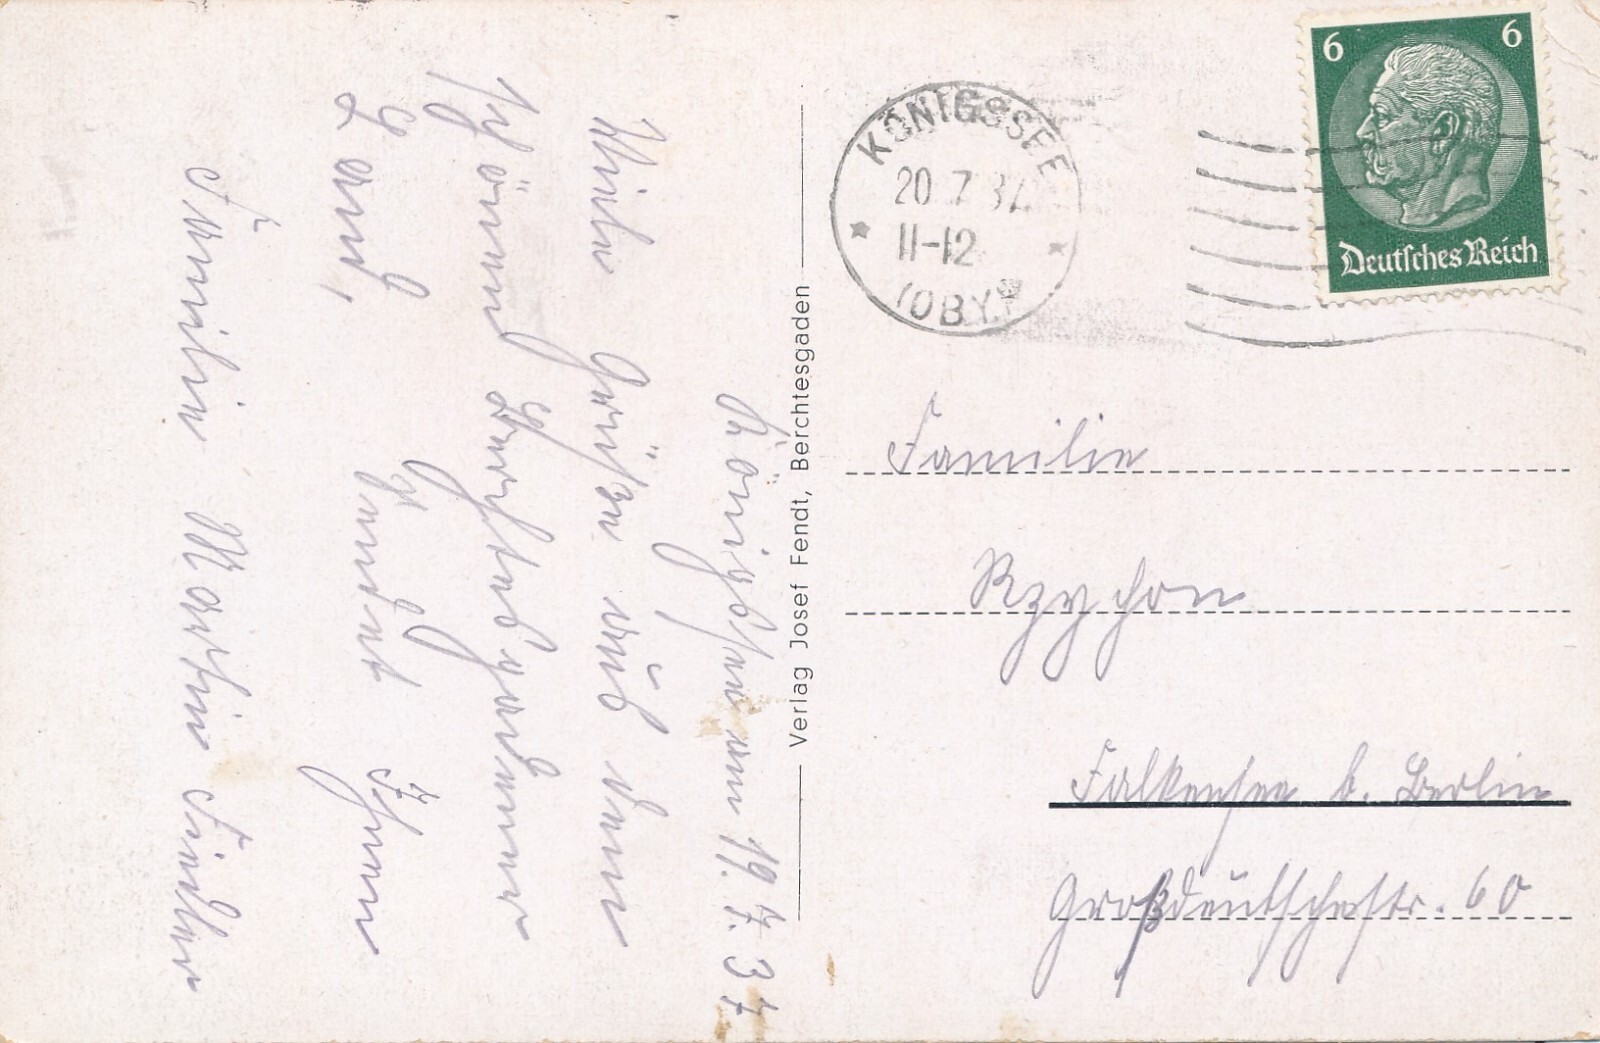 Königssee am 19.7.37
Viele Grüße aus dem
schönen Berchtesgadener
Land,
sendet Ihnen
Familie Martin Fiedler
Verlag Josef Fendt, Berchtesgaden
KÖNIGSSEE
20.7.37
11-12
(OBY.)
6 6
Deutsches Reich
Familie
Rzychon
Falkensee b. Berlin
Großdeutschestr. 60